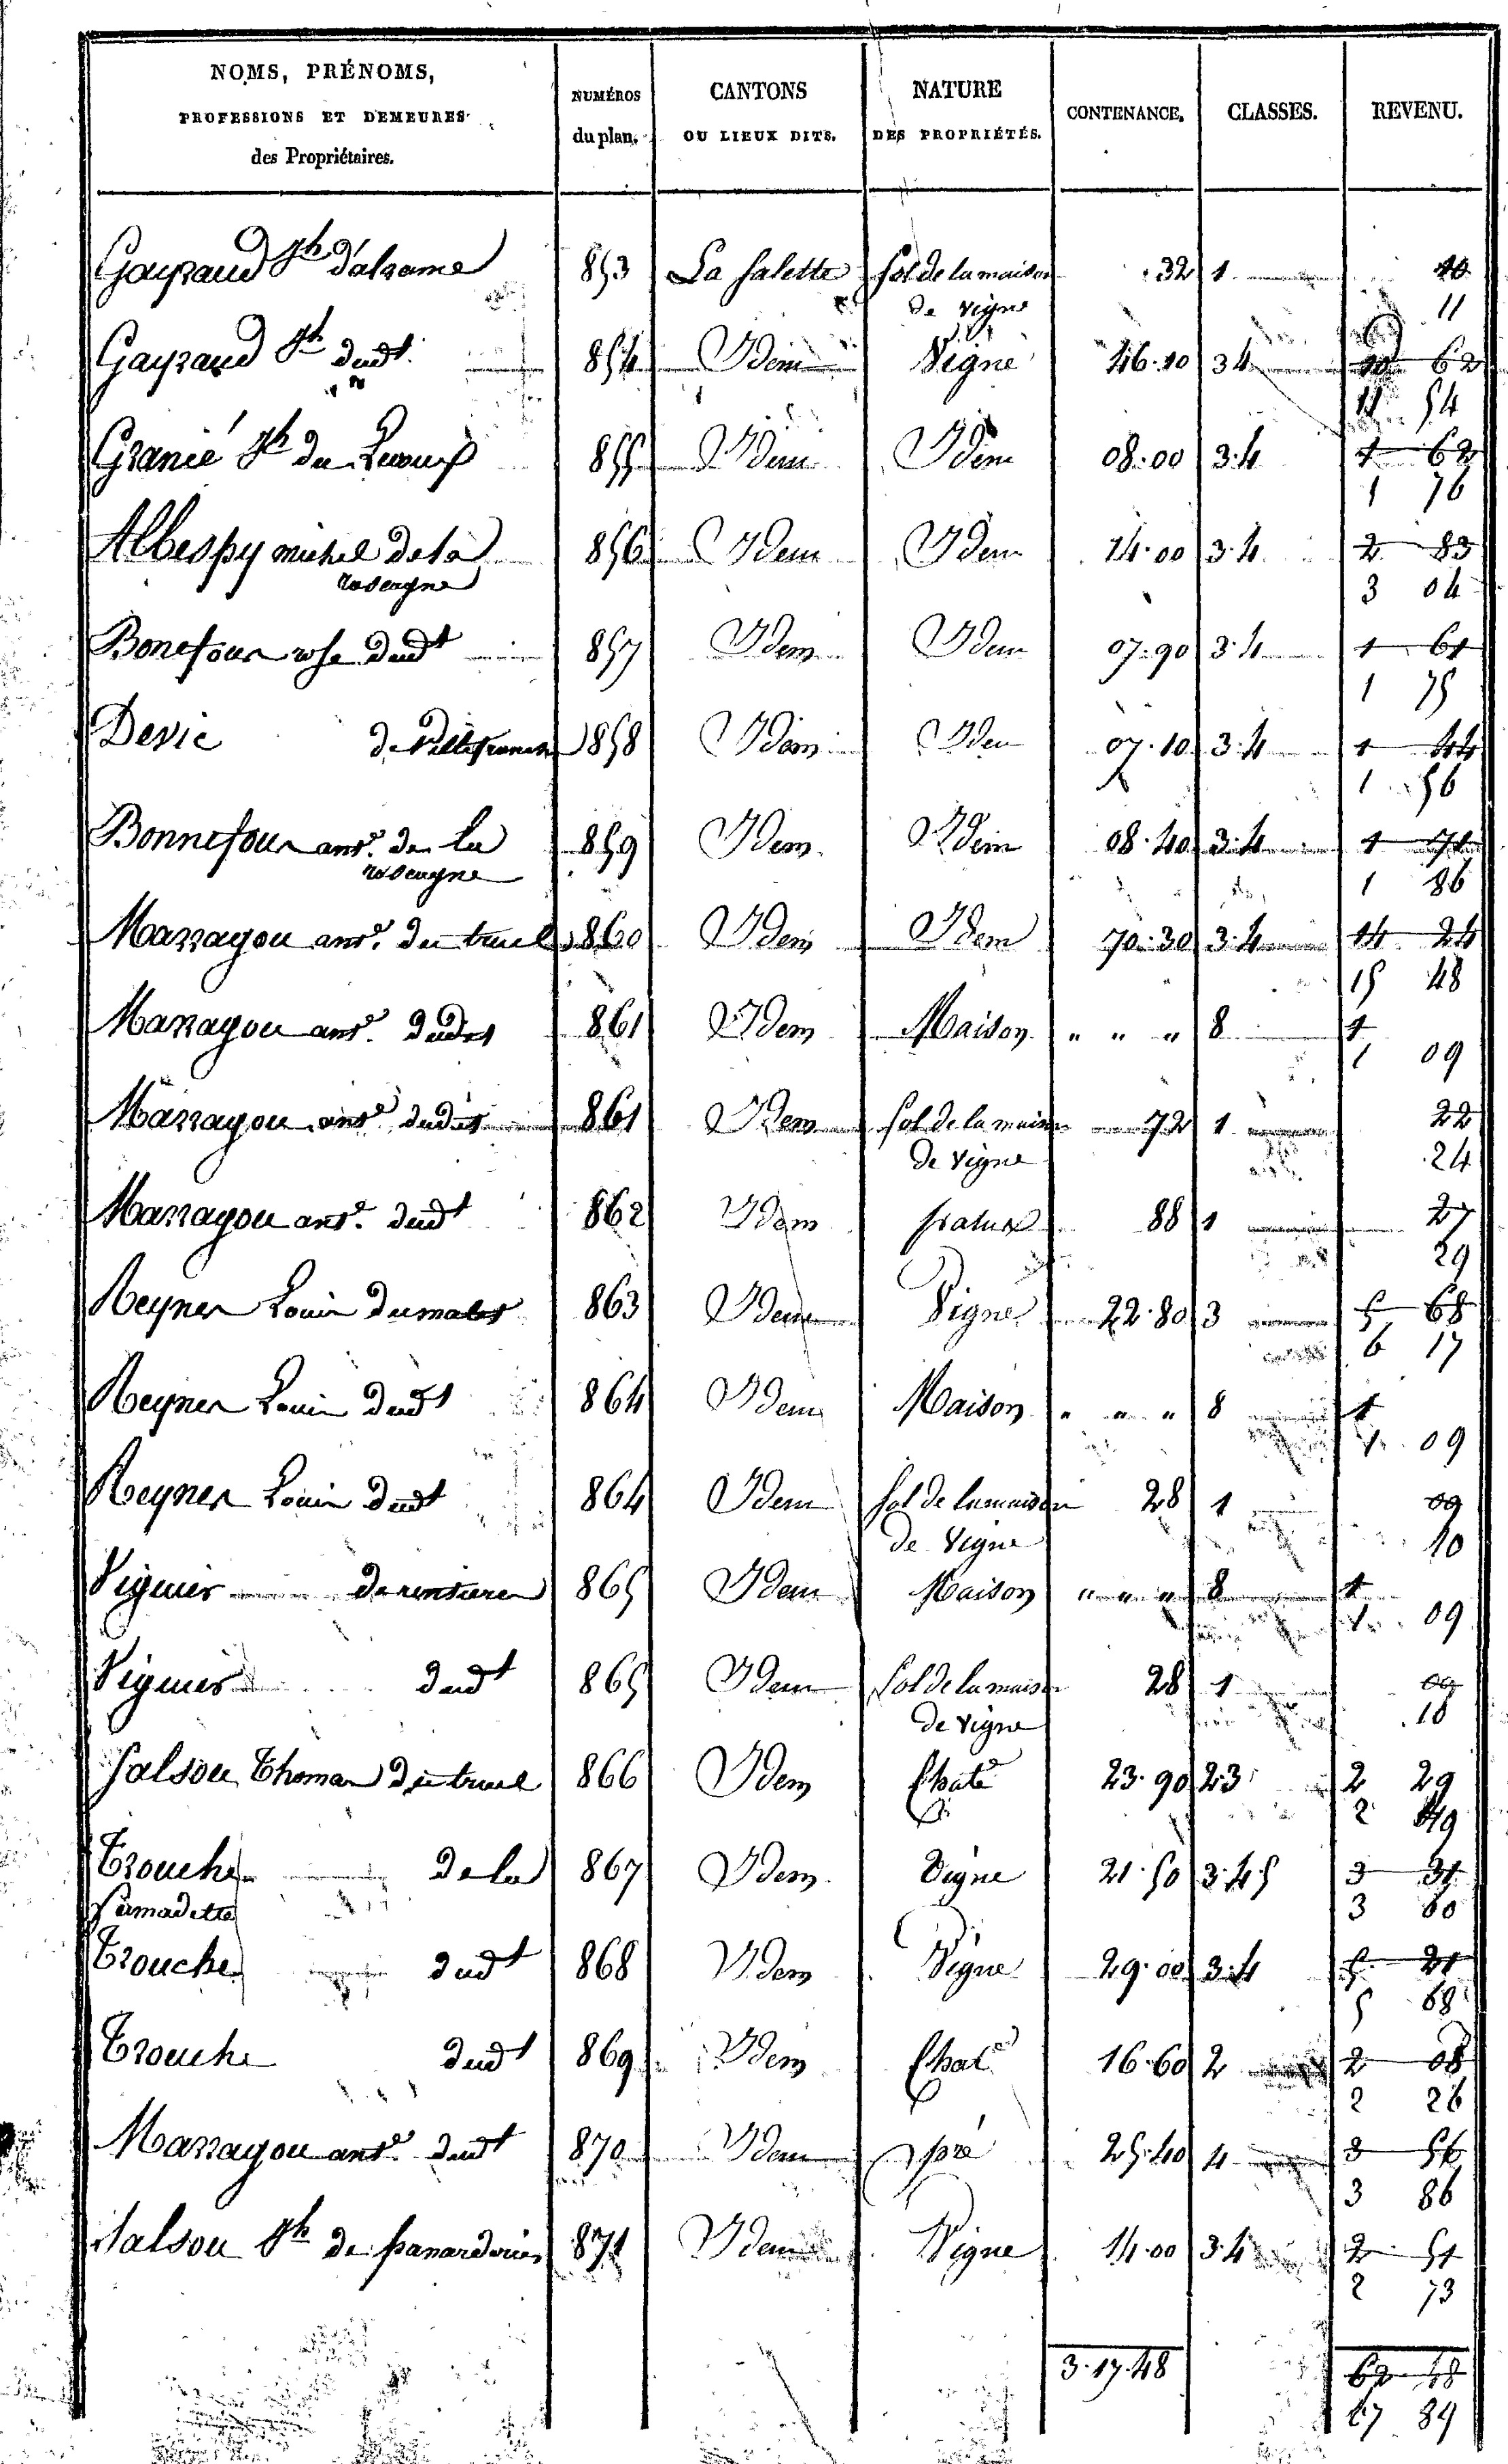 NOMS, PRÉNOMS, PROFESSIONS ET DEMEURES des Propriétaires. NUMÉROS du plan. CANTONS OU LIEUX DITS. NATURE DES PROPRIÉTÉS. CONTENANCE. CLASSES. REVENU.
Gayraud Jh d'alrame 853 La Salette Sol de la maison 32 1 10
de vigne 11
Gayraud Jh dudt 854 Idem Vigne 46.10 34 62
11 54
Granié Jh du 855 Idem Idem 08.00 3.4 1 62
1 76
Albespy michel de la 856 Idem Idem 14.00 3.4 2 83
rosergne 3 04
Bonefour rose dudt 857 Idem Idem 07.90 3.4 1 61
1 75
Devic de Villefranche 858 Idem Idem 07.10 3.4 1 44
1 56
Bonnefour ane. de la 859 Idem Idem 08.40 3.4 1 71
rosergne 1 86
Marragou ane. du truel 860 Idem Idem 70.30 3.4 14 24
15 48
Marragou ane. dudit 861 Idem Maison " " " 8 1
1 09
Marragou ane. dudit 861 Idem Sol de la maison 72 1 22
de vigne 24
Marragou ane. dudt 862 Idem patus 88 1 27
29
Reyner Louis du 863 Idem Vigne 22.80 3 5 68
6 17
Reyner Louis dudt 864 Idem Maison " " " 8 1
1 09
Reyner Louis dudt 864 Idem Sol de la maison 28 1 09
de Vigne 10
Viguier 865 Idem Maison " " " 8 1
1 09
Viguier dudt 865 Idem Sol de la maison 28 1 09
de vigne 10
Salsou Thomas du truel 866 Idem Chate 23.90 23 2 29
2 49
Trouche de la 867 Idem Vigne 21.50 3.4.5 3 31
Ramadette 3 60
Trouche dudt 868 Idem Vigne 29.00 3.4 5 21
5 68
Trouche dudt 869 Idem Chate 16.60 2 2 08
2 26
Marragou ane. dudt 870 Idem pré 25.40 4 3 56
3 86
Salsou Jh de 871 Idem Vigne 14.00 3.4 2 51
2 73
3.17.48 62 48
67 89